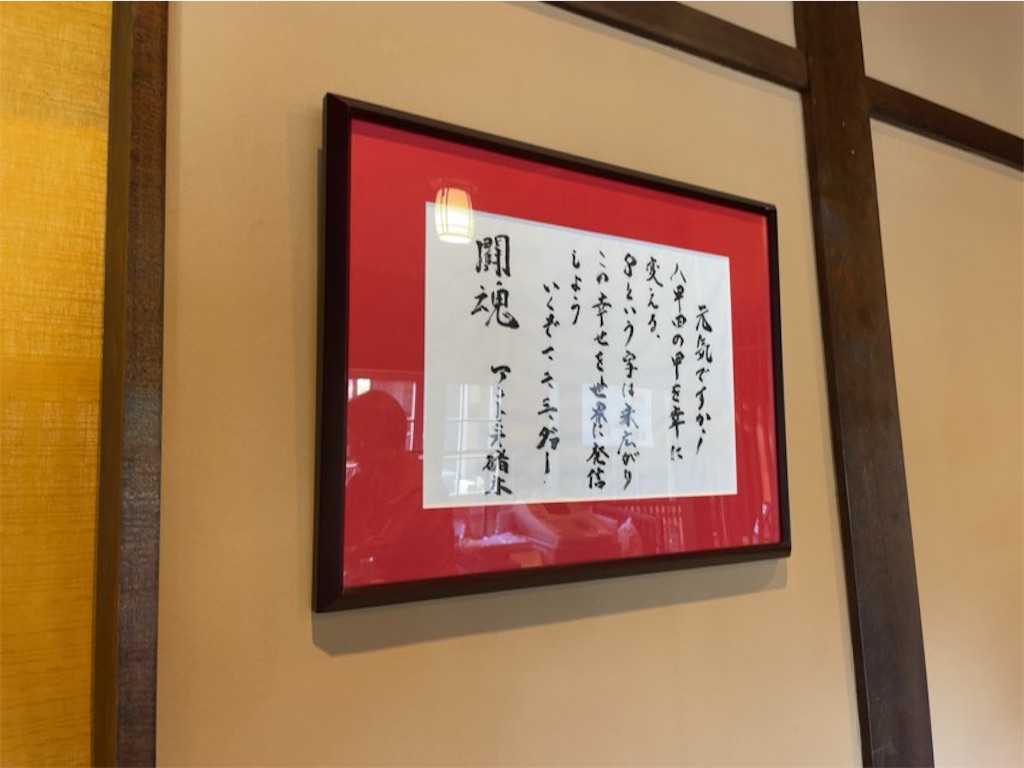 元気ですか！
八甲田の甲を幸に
変える、
8という字は末広がり
この幸せを世界に発信
しよう
いくぞ一、二、三、ダァー！
闘魂 アントニオ猪木